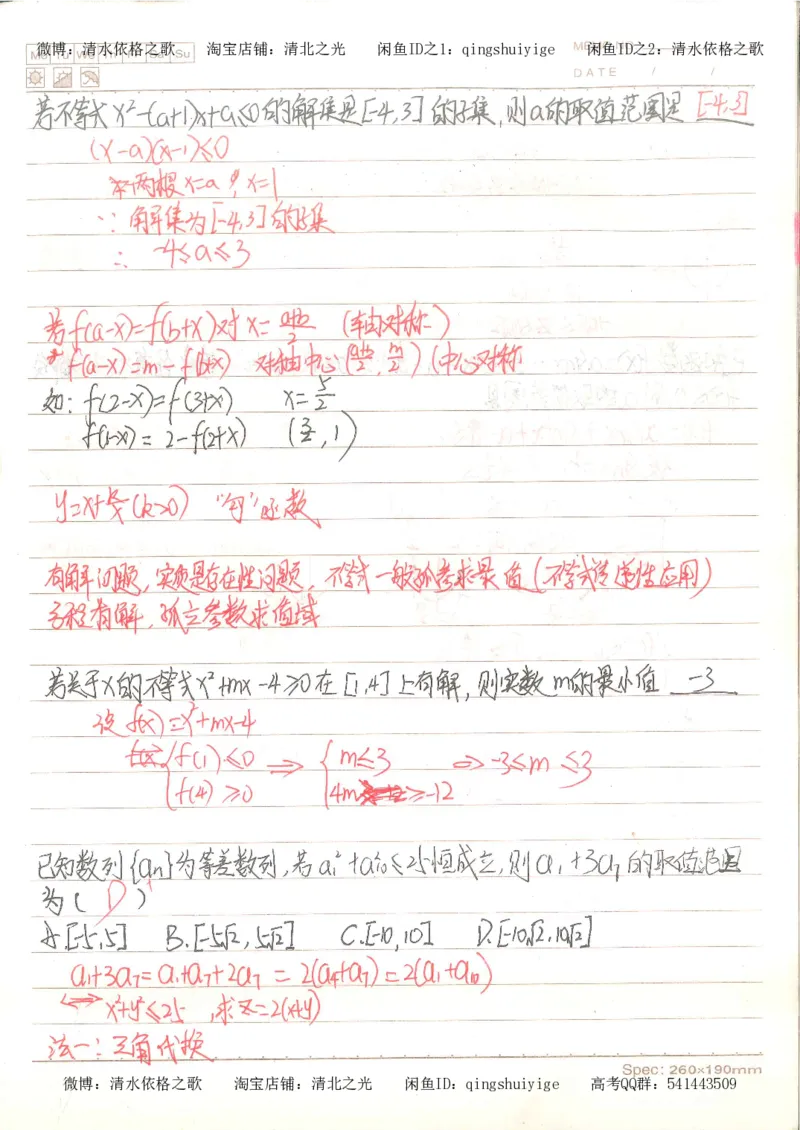 微博：清水依格之歌 淘宝店铺：清北之光 闲鱼ID之1：qingshuiyige 闲鱼ID之2：清水依格之歌
Mo Tu We Th Fr Sa Su
DATE / /
若不等式 x²-(a+1)x+a≤0的解集是[-4,3]的子集,则a的取值范围是 [-4,3]
(x-a)(x-1)≤0
两根 x=a, x=1
∵ 解集为[-4,3]的子集
∴ -4≤a≤3
若f(a-x)=f(b+x)对 x=(a+b)/2 (轴对称)
f(a-x)=m-f(b+x) 对 中心((a+b)/2, m/2) (中心对称
如: f(2-x)=f(3+x) x=5/2
f(1-x)=2-f(2+x) (3/2,1)
y=x+k/x(k>0) "勾"函数
有解问题,实质是存在性问题,不等式一般孤参求最值(不等式传递性应用)
方程有解,孤立参数求值域
若关于x的不等式x²+mx-4≥0在[1,4]上有解,则实数m的最小值 -3
设 f(x)=x²+mx-4
{f(1)≤0 ⇒ {m≤3 ⇒ -3≤m≤3
{f(4)≥0 {4m≥-12
已知数列{an}为等差数列,若a₁²+a₁₀²≤25恒成立,则a₁+3a₇的取值范围
为( D )
A.[-5,5] B.[-5√2,5√2] C.[-10,10] D.[-10√2,10√2]
a₁+3a₇=a₁+a₇+2a₇=2(a₄+a₇)=2(a₁+a₁₀)
⟺ x²+y²≤25 ,求z=2(x+y)
法一:三角代换
Spec: 260×190mm
微博：清水依格之歌 淘宝店铺：清北之光 闲鱼ID：qingshuiyige 高考QQ群：541443509